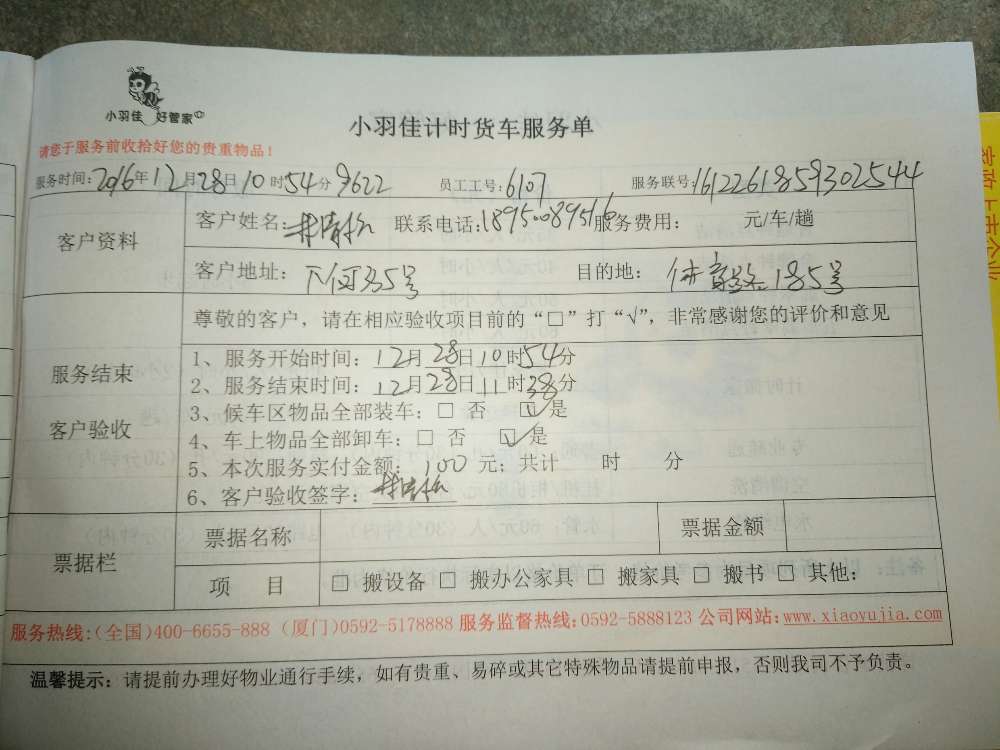 小羽佳 好管家
小羽佳计时货车服务单
请您于服务前收拾好您的贵重物品！
服务时间：2016年12月28日10时54分 9622 员工工号：6107 服务联号：1612261859302544
客户资料
客户姓名： 联系电话：18950089516 服务费用： 元/车/趟
客户地址：下何35号 目的地：体育路185号
服务结束
客户验收
尊敬的客户，请在相应验收项目前的“□”打“√”，非常感谢您的评价和意见
1、服务开始时间：12月28日10时54分
2、服务结束时间：12月28日11时38分
3、候车区物品全部装车：□ 否 ☑ 是
4、车上物品全部卸车：□ 否 ☑ 是
5、本次服务实付金额：100元；共计 时 分
6、客户验收签字：
票据栏
票据名称 票据金额
项 目 □ 搬设备 □ 搬办公家具 □ 搬家具 □ 搬书 □ 其他：
服务热线:(全国)400-6655-888 (厦门)0592-5178888 服务监督热线:0592-5888123 公司网站:www.xiaoyujia.com
温馨提示：请提前办理好物业通行手续，如有贵重、易碎或其它特殊物品请提前申报，否则我司不予负责。